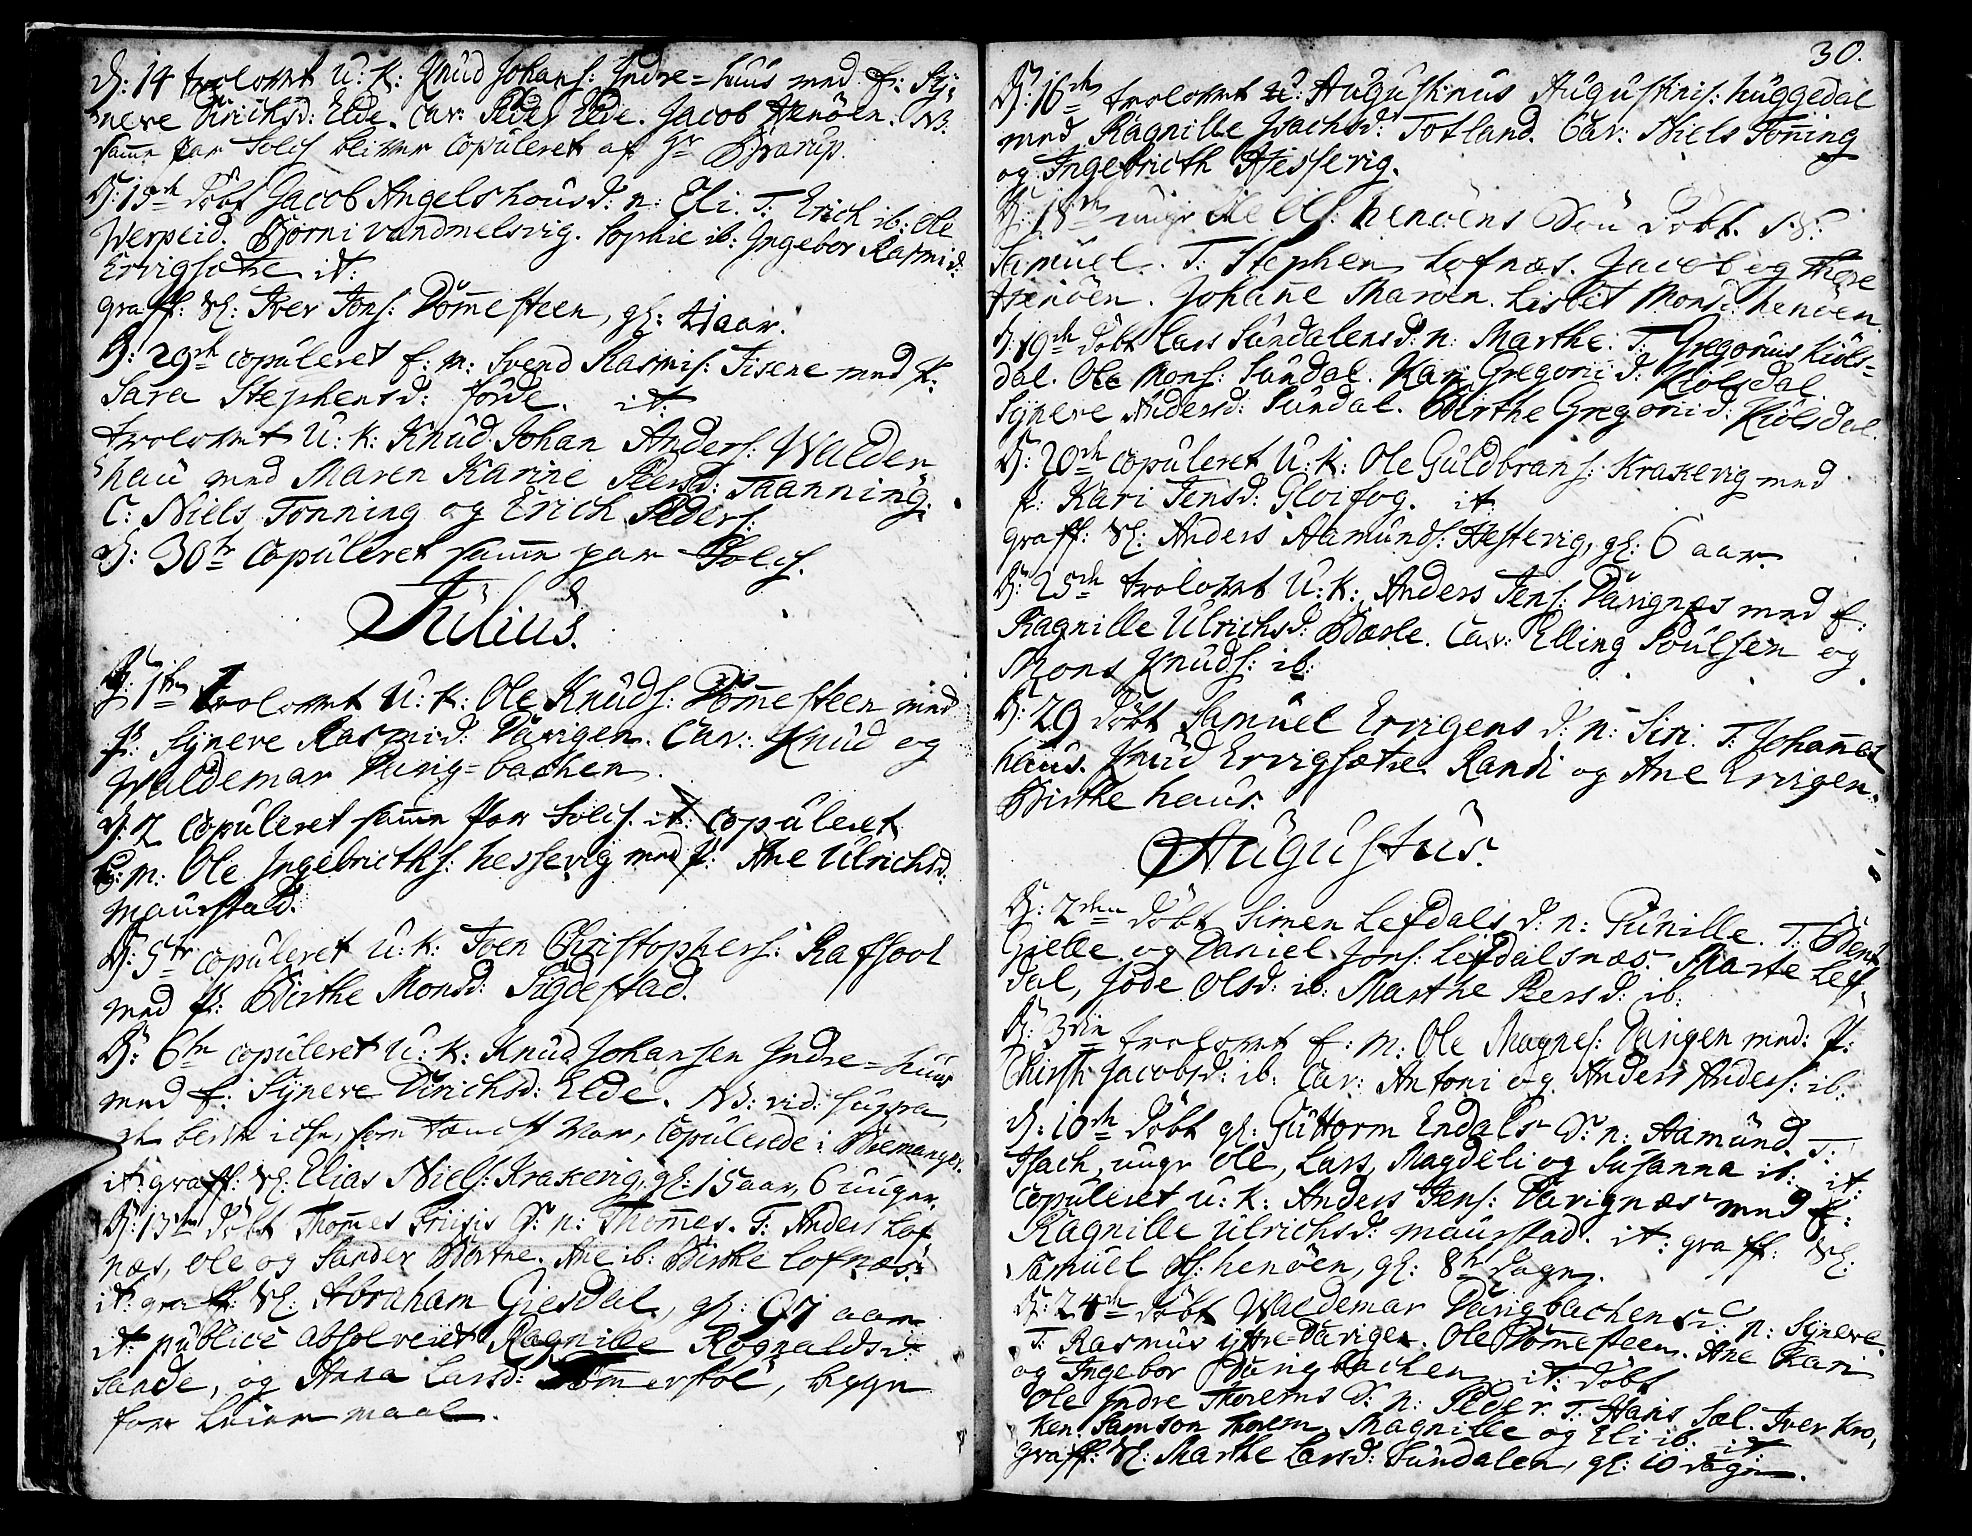 D: 14 trolovet U: K: Knud Johans: Indre=huus med f: Sy:
neve Dirichsd: Elde. Cav: Peder Elde. Jacob Henöen. NB.
samme par Solis bliver Copuleret af Hr Brarup.
D: 19de döbt Jacob Angelshousd: n: Eli. T: Erich ib: Ole
Werpeid. Biörn i vandmelsvig. Sophie ib: Ingebor Rasmid:
Ervigsætre it:
graff: Sl: Iver Jons: Dommesteen, gl: 41 aar.
D: 29de copuleret E: m: Svend Rasmis: Tisene med P:
Sara Stephensd: förde. it:
trolovet U: K: Knud Johan Anders: Walden
hau med Maren Karine Pedersd: Taanning.
C: Niels Tonning og Erich Peders:
D: 30te Copuleret samme par Solis.
Julius.
D: 1ste trolovet U: K: Ole Knuds: Dommesteen med
P: Syneve Rasmid: Davigen. Cav: Knud og
Waldemar Davig=bachen.
D: 2 Copuleret samme par Solis. it: copuleret
E: m: Ole Ingebricths: hessevig med P: Ane Ulrichsd:
Maurstad.
D: 5te copuleret U: K: Iven Christophers: Rafsool
med P: Birthe Monsd: Sigdestad.
D: 6te copuleret U: K: Knud Johansen Indre=huus
med f: Synere Dirichsd: Elde. NB: vid: supra
som tænckt var, Copulerede i Bremanger.
it: graff: Sl: Elias Niels: Krakevig, gl: 15 aar, 6 uuger.
D: 13de döbt Thommes Friisis S: n: Thommes. T: Anders Lof
næs, Ole og Sander Biertne. Ane ib: Birthe Lofnæs.
it: graff: Sl: Abraham Giesdal, gl: 97 aar
it: publicè absolveret Ragnille Rognaldsd:
Sande, og Anna Larsd: Tommerstöl, begge
for Leiermaal.
30.
D: 16de trolovet U: Augustinus Augustinis: huggedal
med Ragnille Isachsd: Totland. Cav: Niels Toning
og Ingebricth Hessevig.
D: 18de unge Ole Ols: henöens Sön döbt. N:
Samuel. T: Stephen Lofnæs. Jacob og There
Henöen. Johanne Maröen. Lisbet Monsd: henöen.
D: 19de döbt Lars Sundalens D: n: Marthe. T: Gregorius Kiöls=
dal. Ole Mons: Sundal. Kari Gregorii d: Kiölsdal.
Synere Andersd: Sundal. Birthe Gregorii d: Kiölsdal.
D: 20de copuleret U: K: Ole Guldbrans: Krakevig med
P: Kari Jensd: Gloifog. it:
graff: Sl: Anders Aamunds: Hessevig, gl: 6 aar.
D: 25de trolovet U: K: Anders Jens: Davignæs med f:
Ragnille Ulrichsd: Bærle. Cav: Elling Poulsen og
Mons Knuds: ib:
D: 29 döbt Samuel Ervigens D: n: Siri. T: Johannes
haus. Knud Ervigsætre. Randi og Ane Ervigen.
Birthe haus.
Augustus.
D: 2den döbt Simen Lefdals D: n: Pernille. T: Bent
Gielle og Daniel Jons: Lefdalsnæs. Marte Lef
dal, Jöde Olsd: ib: Marthe Persd: ib:
D: 3die trolovet E: m: Ole Magnes: Davigen med: P:
Chirsti Jacobsd: ib: Cav: Antoni og Anders Anders: ib:
D: 10de döbt gl: Guttorm Endals S: n: Aamund. T:
Isach, unge Ole, Lars, Magdeli og Susanna ib: it:
Copuleret U: K: Anders Jens: Davignæs med f:
Ragnille Ulrichsd: Maurstad. it: graff: Sl:
Samuel Ols: henöen, gl: 8te Dage.
D: 24de döbt Waldemar Davigbachens D: n: Synere.
T: Rasmus ytre=Davigen. Ole Dommesteen. Ane Kari
og Ingebor Davigbachen it: döbt
Ole Indre Thorems S: n: Peder. T: Hans Sæl. Iver Kro,
ken. Samson Thorem, Magnille og Eli ib. it:
graff: Sl: Marthe Larsd: Sundalen, gl: 10 dage.